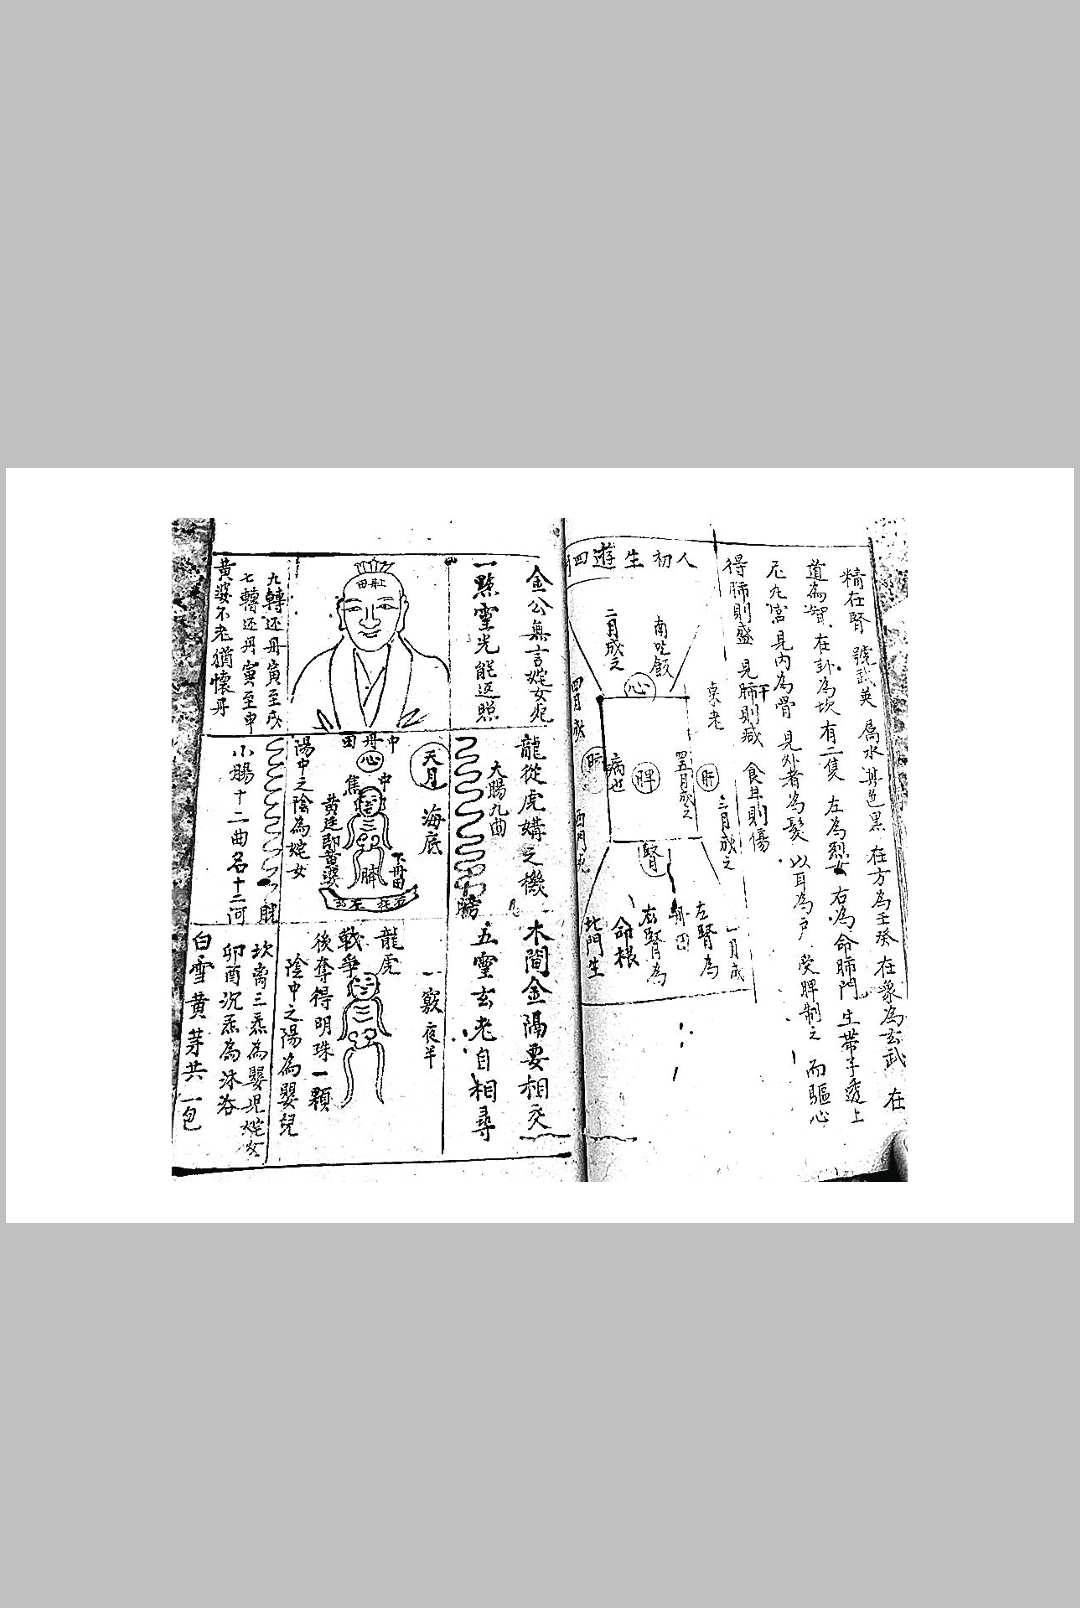 精在腎 號武英 屬水 其色黑 在方為壬癸 在象為玄武 在
道為智 在卦為坎 有二隻 左為烈女 右為命肺門 生帶子透上
尼九宮 見內為骨 見外者為髮 以耳為户 受脾制之 而驅心
得肺則盛 見肺則減 食其則傷
人初生遊四
南吃飯
二月成之
心
東老
肝
三月成之
四月成
肺
西門死
脾
五月成之
病也
腎
一月成
左腎為
右腎為
命根
北門生
金公無言姹女死
一點靈光能返照
九轉还丹寅至戌
七轉还丹寅至申
黄婆不老猶懷丹
龍從虎媾之機
大腸九曲
天月
海底
中丹田
心
中焦
黄廷即黄婆
脾
下丹田
陽中之陰為姹女
小腸十二曲名十二河
木間金隔要相交
五靈玄老自相尋
一竅夜半
龍虎
戰爭
後奪得明珠一顆
陰中之陽為嬰兒
坎离三炁為嬰児姹女
卯酉沉炁為沐浴
白雪黄芽共一包